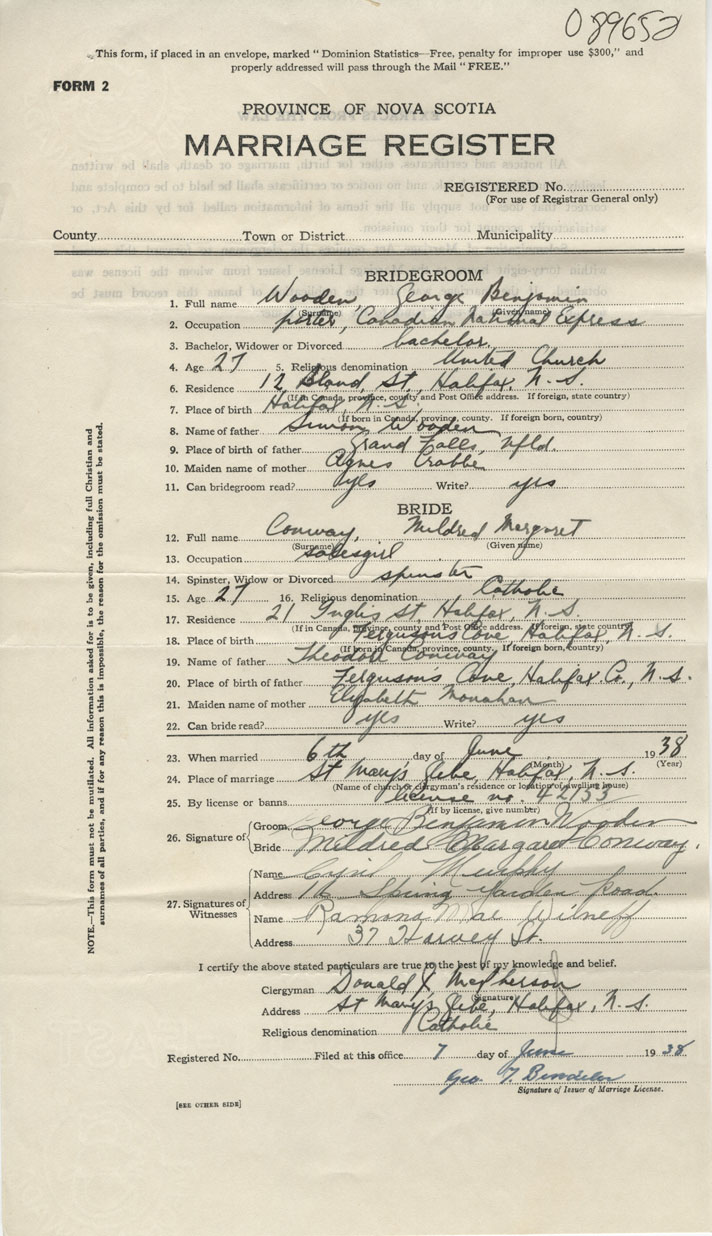 089652
This form, if placed in an envelope, marked "Dominion Statistics—Free, penalty for improper use $300," and
properly addressed will pass through the Mail "FREE."
FORM 2
PROVINCE OF NOVA SCOTIA
MARRIAGE REGISTER
REGISTERED No.
(For use of Registrar General only)
County Town or District Municipality
BRIDEGROOM
1. Full name Wooden, George Benjamin
(Surname) (Given name)
2. Occupation porter, Canadian National Express
3. Bachelor, Widower or Divorced bachelor
4. Age 27 5. Religious denomination United Church
6. Residence 12 Bland St, Halifax, N.S.
(If in Canada, province, county and Post Office address. If foreign, state country)
7. Place of birth Halifax, N.S.
(If born in Canada, province, county. If foreign born, country)
8. Name of father Simon Wooden
9. Place of birth of father Grand Falls, Nfld.
10. Maiden name of mother Agnes Crabbe
11. Can bridegroom read? yes Write? yes
BRIDE
12. Full name Conway, Mildred Margaret
(Surname) (Given name)
13. Occupation salesgirl
14. Spinster, Widow or Divorced spinster
15. Age 27 16. Religious denomination Catholic
17. Residence 21 Inglis St, Halifax, N.S.
(If in Canada, province, county and Post Office address. If foreign, state country)
18. Place of birth Ferguson's Cove Halifax N.S.
(If born in Canada, province, county. If foreign born, country)
19. Name of father Theodore Conway
20. Place of birth of father Ferguson's Cove, Halifax Co., N.S.
21. Maiden name of mother Elizabeth Monahan
22. Can bride read? yes Write? yes
23. When married 6th day of June 1938
(Month) (Year)
24. Place of marriage St Mary's Glebe, Halifax, N.S.
(Name of church or clergyman's residence or location of dwelling house)
25. By license or banns license no. 42133
(If by license, give number)
26. Signature of
Groom George Benjamin Wooden
Bride Mildred Margaret Conway.
27. Signatures of Witnesses
Name Cyril Murphy
Address 16 Spring Garden Road
Name Ramona Mac
Address 37 Harvey St.
I certify the above stated particulars are true to the best of my knowledge and belief.
Clergyman Donald McPherson
(Signature)
Address St Mary's Glebe, Halifax, N.S.
Religious denomination Catholic
Registered No. Filed at this office 7 day of June 1938
Geo.
Signature of Issuer of Marriage License.
[SEE OTHER SIDE]
NOTE.—This form must not be mutilated. All information asked for is to be given, including full Christian and
surnames of all parties, and if for any reason this is impossible, the reason for the omission must be stated.